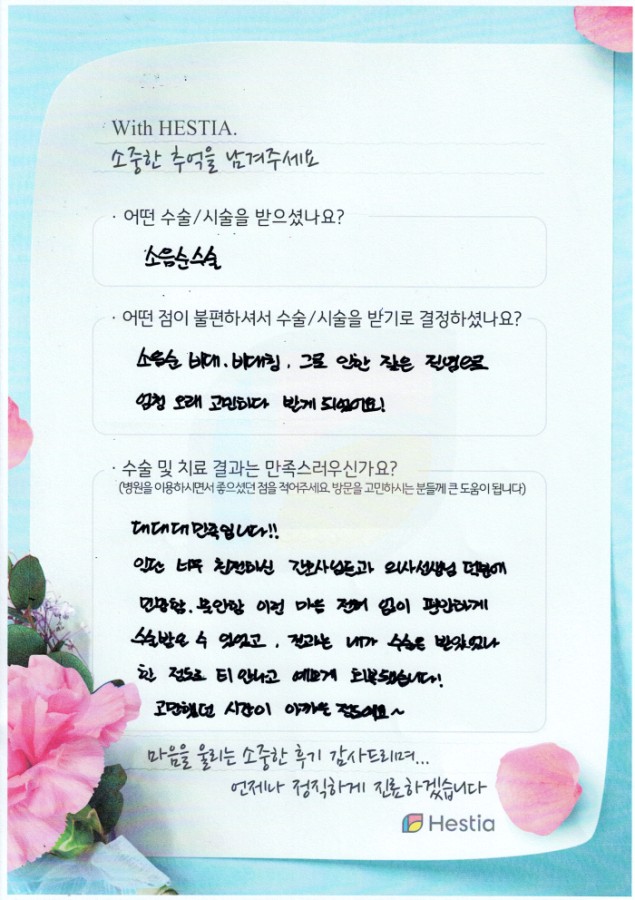 With HESTIA.
소중한 추억을 남겨주세요
· 어떤 수술/시술을 받으셨나요?
소음순수술
· 어떤 점이 불편하셔서 수술/시술을 받기로 결정하셨나요?
소음순 비대, 비대칭, 그로 인한 잦은 질염으로
엄청 오래 고민하다 받게 되었어요!
· 수술 및 치료 결과는 만족스러우신가요?
(병원을 이용하시면서 좋으셨던 점을 적어주세요. 방문을 고민하시는 분들께 큰 도움이 됩니다)
대대대만족입니다!!
일단 너무 친절하신 간호사님들과 의사선생님 덕분에
민망함, 불안함 이런 마음 전혀 없이 편안하게
수술받을 수 있었고, 결과는 내가 수술을 받았었나
할 정도로 티 안나고 예쁘게 회복됐습니다!
고민했던 시간이 아까울 정도에요~
마음을 울리는 소중한 후기 감사드리며...
언제나 정직하게 진료하겠습니다
Hestia